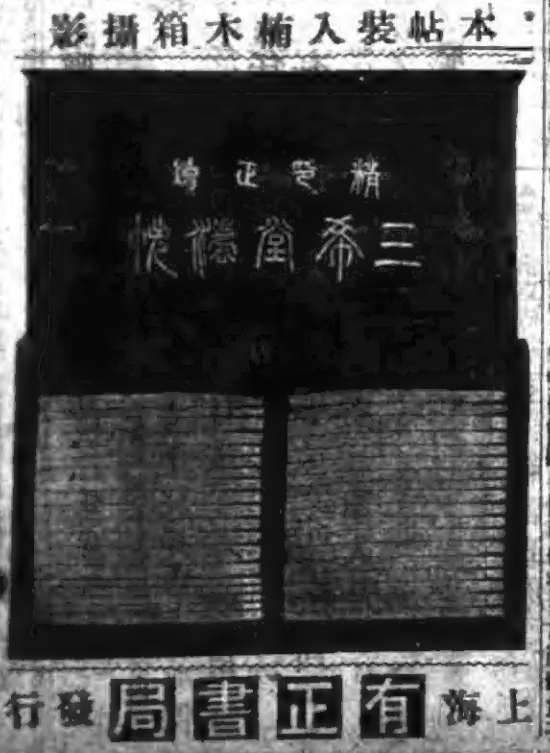 本帖裝入楠木箱攝影
精印正續
三希堂法帖
上海有正書局發行